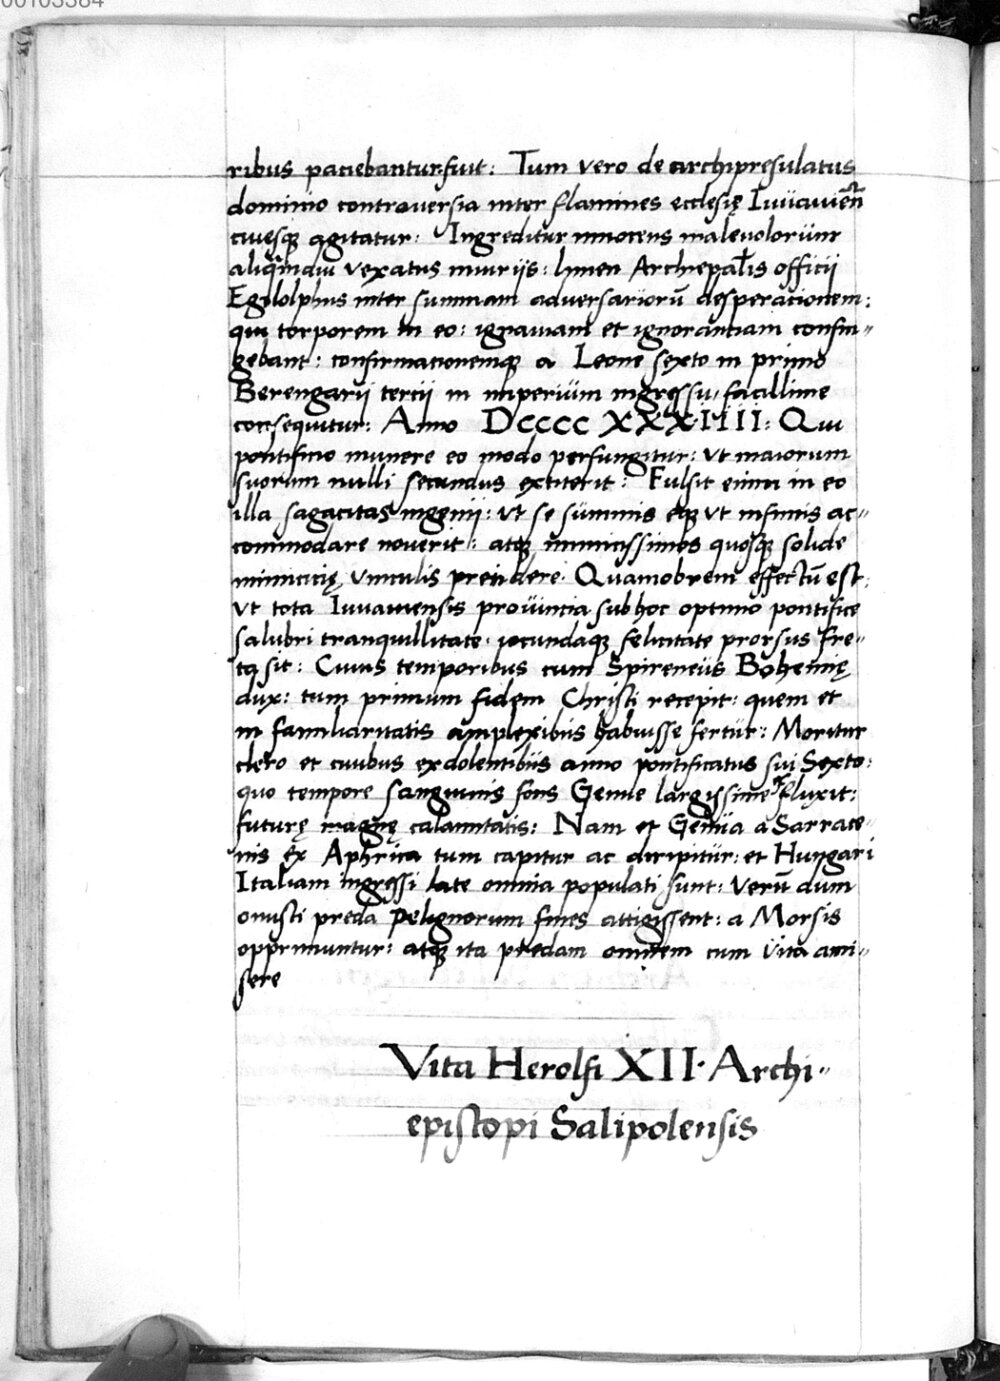 00103384
ribus patiebantur fuit: Tum vero de archipresulatus
dominio controversia inter flamines ecclesię Iuüauień
ciuesq̨ agitatur: Ingreditur innocens maleuolorünt
aliqĩndiu vexatus iniurijs: limen Archiepãlis officii
Egilolphus inter summam adversariorũ desperationem:
qui torporem in eo: ignauiam et ignorantiam confin-
gebant: confirmationemq̨ a Leone sexto in primo
Berengarij tercii in imperiüm ingressu, facillime
consequitur: Anno Dcccc XXXIIII: Qui
pontificio munere eo modo perfungitur: ut maiorum
suorum nulli secundus extiterit: Fulsit enim in eo
illa sagacitas ingenij: ut se sümmis eq̨ ut infimis ac-
commodare noverit: atq̨ inimicissimos quosq̨ solide
inimicicię vinculis prendere. Quamobrem effectũ est:
ut tota Iuuauiensis proüincia sub hoc optimo pontifice
salubri tranquillitate. iocundaq̨ felicitate prorsus fre-
ta sit: Cuius temporibus cum Spireneüs Bohemię
dux: tum primum fidem Christi recepit: quem et
in familiaritatis amplexibüs habuisse fertür: Moritur
clero et ciuibus exdolentibüs anno pontificatus sui Sexto:
quo tempore sanguinis fons Genue largissime fluxit:
futurę magnę calamitatis: Nam et Genüa a Sarrace-
nis ex Aphrica tum capitur ac diripitür: et Hungari
Italiam ingressi late omnia populati sunt: Verũ dum
onusti preda Pelignorum fines attigissent: a Morsis
opprimuntur: atq̨ ita predam omnem cum üita ami-
sere
Vita Herolfi XII. Archi-
episcopi Salipolensis